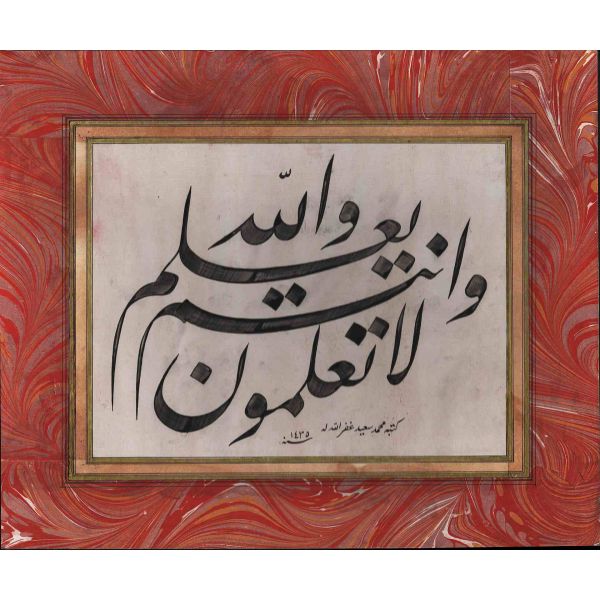 والله يعلم
وانتم
لا تعلمون
كتبه محمد سعيد غفر الله له
سنه ١٤٣٥